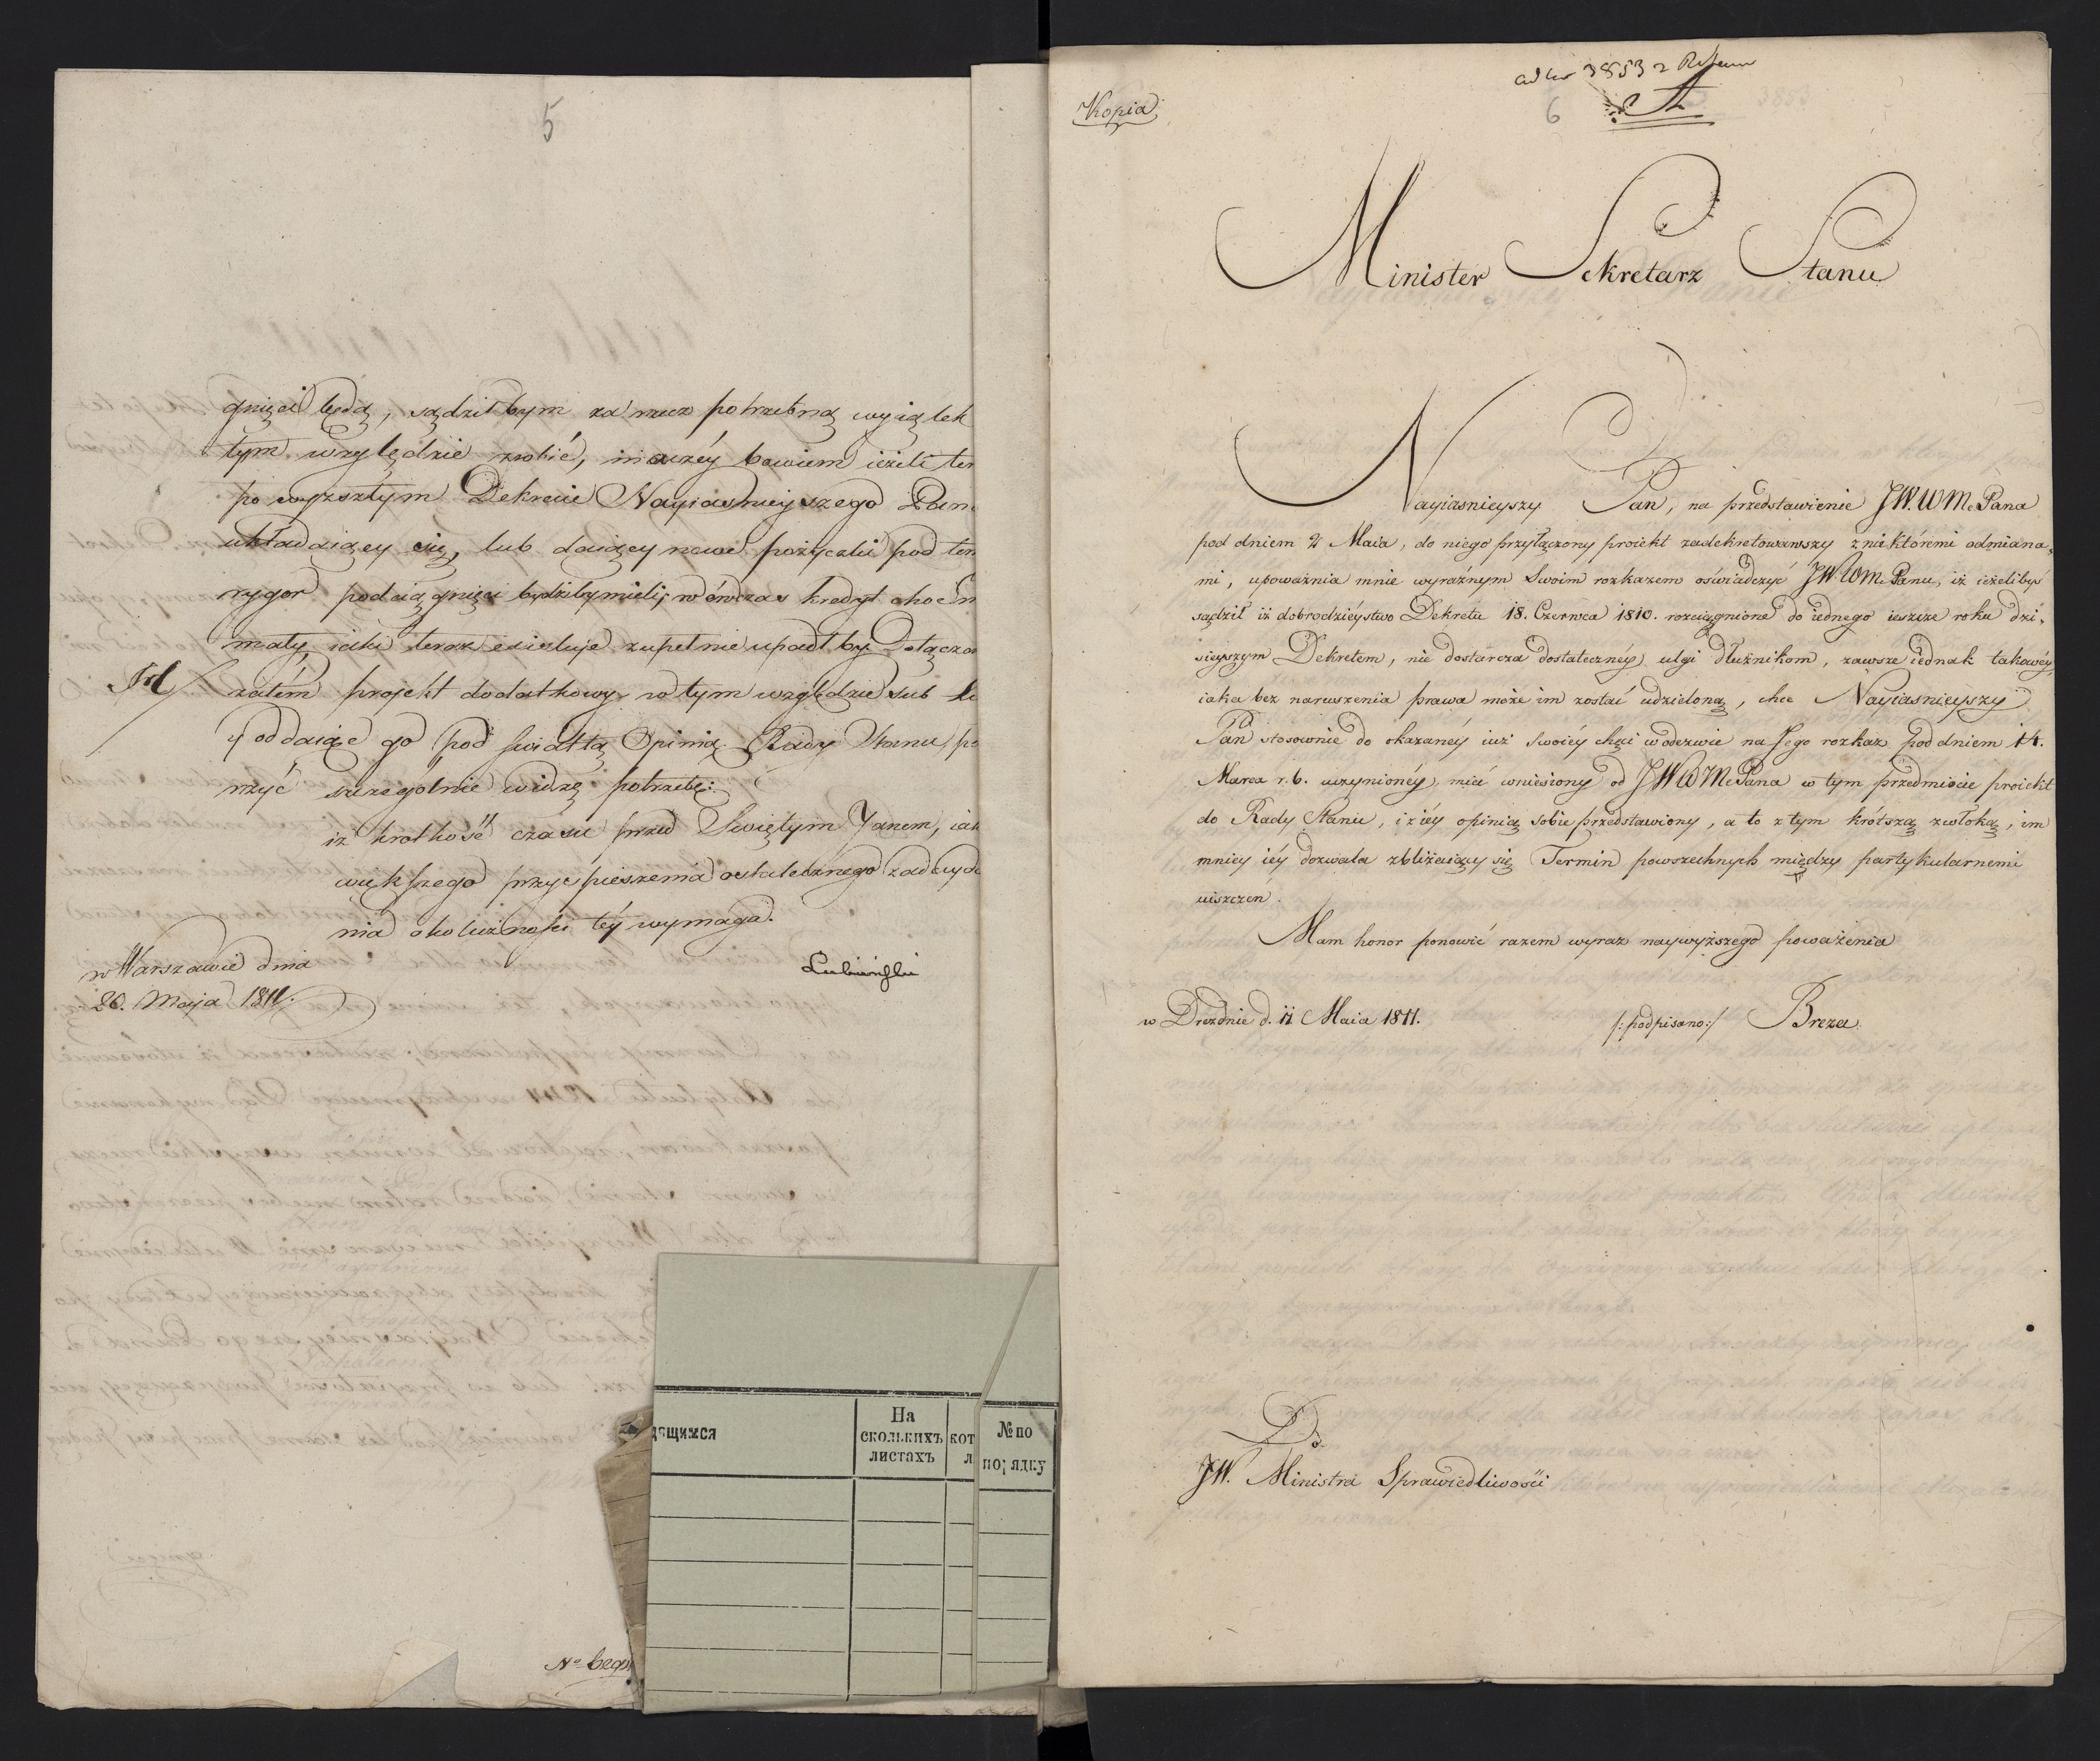 5
gnięci będą, sądziłbym za rzecz potrzebną wyiątek
tym względzie zrobić, inaczéy bowiem ieżeli
po wyszłym Dekrecie Nayiaśnieyszego
układaiący się, lub daiący nowe pożyczki pod
rygor podciągnięci bydźby mieli, wówczas kredyt
mały, iaki teraz exiestuje zupełnie upadł by.
zatém projekt dodatkowy w tym względzie sub
y oddaiąc go pod światłą Opinią Rady Stanu,
szczególnie widzę potrzebę:
iż krotkość czasu przed Swiętym Janem,
większego przyspieszenia ostatecznego
nia okoliczności téy wymaga.
w Warszawie dnia
20. Maja 1811.
Lubieński
На
скольнихъ
листахъ
кот
л
№ по
порядку
Kopia
3853
6
A
3853
Minister Sekretarz Stanu
Nayiasnieyszy Pan, na przedstawienie JW. WM. Pana
pod dniem 2 Maia, do niego przyłączony proiekt zadekretowawszy z niektóremi odmiana,
mi, upoważnia mnie wyraźnym Swoim rozkazem oświadczyć JW. WM. Panu, iż ieżelibyś
sądził iż dobrodzieystwo Dekretu 18. Czerwca 1810. rozciągnione do iednego ieszcze roku dzi,
sieyszym Dekretem, nie dostarcza dostatecznéy ulgi dłużnikom, zawsze iednak takowéy,
iaka bez naruszenia prawa może im zostać udzieloną, chce Nayiasnieyszy
Pan stosownie do okazanéy iuż Swoiéy chęci w odezwie na Jego rozkaz pod dniem 14.
Marca r. b. uczynionéy, mieć wniesiony od JW WM. Pana w tym przedmiocie proiekt
do Rady Stanu, i z iéy opinią sobie przedstawiony, a to z tym krótszą zwłoką, im
mniey iéy dozwala zbliżaiący się Termin powszechnych między partykularnemi
uiszczeń.
Mam honor ponowić razem wyraz naywyższego poważenia
w Dreźdnie d. 11 Maia 1811.
/: podpisano :/ Breza.
Do
JW. Ministra Sprawiedliwości